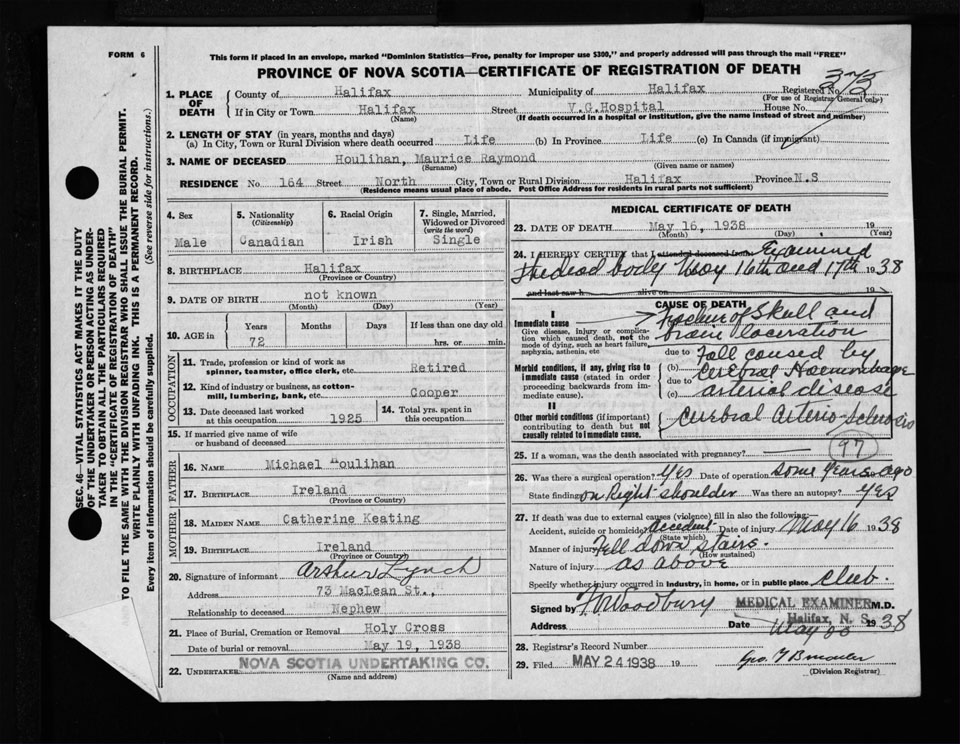 FORM 6
This form if placed in an envelope, marked "Dominion Statistics—Free, penalty for improper use $300," and properly addressed will pass through the mail "FREE"
PROVINCE OF NOVA SCOTIA—CERTIFICATE OF REGISTRATION OF DEATH
1. PLACE OF DEATH
County of Halifax Municipality of Halifax Registered No.
(For use of Registrar General only)
If in City or Town Halifax Street V.G.Hospital House No.
(Name) (If death occurred in a hospital or institution, give the name instead of street and number)
2. LENGTH OF STAY (in years, months and days)
(a) In City, Town or Rural Division where death occurred Life (b) In Province Life (c) In Canada (if immigrant)
3. NAME OF DECEASED Houlihan, Maurice Raymond
(Surname) (Given name or names)
RESIDENCE No. 164 Street North City, Town or Rural Division Halifax Province N.S
(Residence means usual place of abode. Post Office Address for residents in rural parts not sufficient)
4. Sex Male
5. Nationality (Citizenship) Canadian
6. Racial Origin Irish
7. Single, Married, Widowed or Divorced (write the word) Single
8. BIRTHPLACE Halifax
(Province or Country)
9. DATE OF BIRTH not known
(Month) (Day) (Year)
10. AGE in Years Months Days If less than one day old
72 hrs. or min.
OCCUPATION
11. Trade, profession or kind of work as spinner, teamster, office clerk, etc. Retired
12. Kind of industry or business, as cotton-mill, lumbering, bank, etc. Cooper
13. Date deceased last worked at this occupation 1925
14. Total yrs. spent in this occupation
15. If married give name of wife or husband of deceased
FATHER
16. NAME Michael Houlihan
17. BIRTHPLACE Ireland
(Province or Country)
MOTHER
18. MAIDEN NAME Catherine Keating
19. BIRTHPLACE Ireland
(Province or Country)
20. Signature of informant Arthur Lynch
Address 73 MacLean St.,
Relationship to deceased Nephew
21. Place of Burial, Cremation or Removal Holy Cross
Date of burial or removal May 19, 1938
22. UNDERTAKER NOVA SCOTIA UNDERTAKING CO.
(Name and address)
MEDICAL CERTIFICATE OF DEATH
23. DATE OF DEATH May 16, 1938 19
(Month) (Day) (Year)
24. I HEREBY CERTIFY that I attended deceased from Examined
the dead body May 16th and 17th 1938
and last saw h alive on 19
CAUSE OF DEATH
I
Immediate cause
Give disease, injury or complication which caused death, not the mode of dying, such as heart failure, asphyxia, asthenia, etc
Fracture of Skull and
brain laceration
due to
Morbid conditions, if any, giving rise to immediate cause (stated in order proceeding backwards from immediate cause).
(b) Fall caused by
Cerebral Haemorrhage
due to
(c) arterial disease
II
Other morbid conditions (if important) contributing to death but not causally related to immediate cause.
Cerebral Arterio-Sclerosis
97
25. If a woman, was the death associated with pregnancy?
26. Was there a surgical operation? Yes Date of operation some years ago
State finding on Right shoulder Was there an autopsy? Yes
27. If death was due to external causes (violence) fill in also the following:
Accident, suicide or homicide? Accident Date of injury May 16 1938
(State which)
Manner of injury Fell down stairs.
(How sustained)
Nature of injury as above
Specify whether injury occurred in industry, in home, or in public place Club.
Signed by MEDICAL EXAMINER M.D.
Address Halifax, N. S.
Date May 1938
28. Registrar's Record Number
29. Filed MAY 24 1938 19
(Division Registrar)
SEC. 46—VITAL STATISTICS ACT MAKES IT THE DUTY
OF THE UNDERTAKER OR PERSON ACTING AS UNDER-
TAKER TO OBTAIN ALL THE PARTICULARS REQUIRED
IN THE "CERTIFICATE OF REGISTRATION OF DEATH"
TO FILE THE SAME WITH THE DIVISION REGISTRAR WHO SHALL ISSUE THE BURIAL PERMIT.
WRITE PLAINLY WITH UNFADING INK. THIS IS A PERMANENT RECORD.
Every item of information should be carefully supplied. (See reverse side for instructions.)